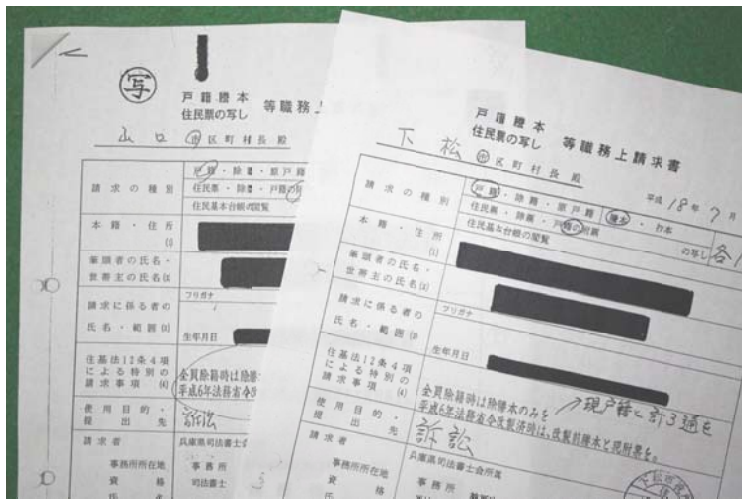 写
戸籍謄本
住民票の写し
等職務上
山口 市区町村長殿
請求の種別
戸籍・除籍・原戸籍
住民票・除票・戸籍の附
住民基本台帳の閲覧
本籍・住所
(1)
筆頭者の氏名・
世帯主の氏名(2)
請求に係る者の
氏名・範囲(3)
フリガナ
生年月日
住基法12条4項
による特別の
請求事項 (4)
全員除籍時は除謄
平成6年法務省令改
使用目的・
提出先
訴訟
請求者
兵庫県司法書士会
事務所所在地
事務所
資格
司法書士
戸籍謄本
住民票の写し
等職務上請求書
下松 市区町村長殿
平成18年7月
請求の種別
戸籍・除籍・原戸籍 謄本・抄本
住民票・除票・戸籍の附票
の写し
各1
住民基本台帳の閲覧
本籍・住所
(1)
筆頭者の氏名・
世帯主の氏名(2)
請求に係る者の
氏名・範囲(3)
フリガナ
生年月日
住基法12条4項
による特別の
請求事項 (4)
全員除籍時は除謄本のみを
現戸籍と計3通を
平成6年法務省令改製済時は、改製前謄本と現附票を。
使用目的・
提出先
訴訟
請求者
兵庫県司法書士会所属
事務所所在地
事務所
資格
司法書士